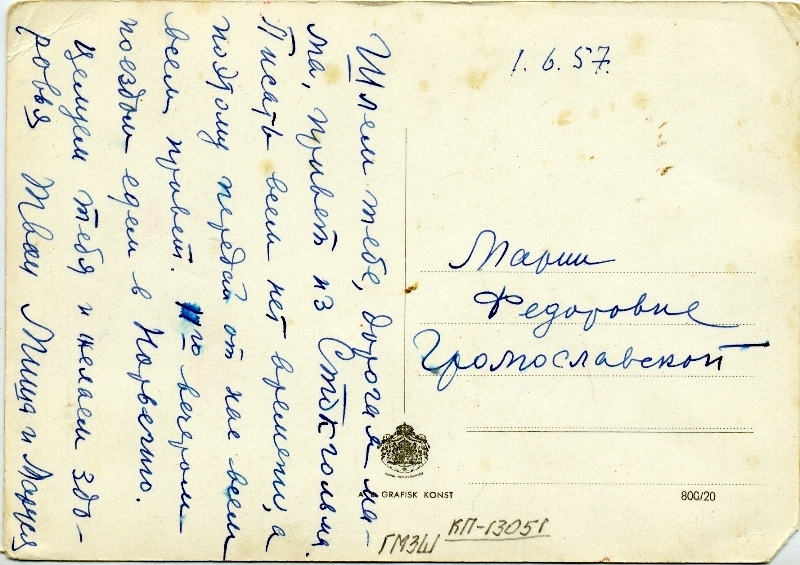 Шлем тебе, дорогая ма-
ма, привет из Стокгольма.
Писать всем нет времени, а
поэтому передай от нас всем
всем привет. 1го вечером
поездом едем в Норвегию.
Целуем тебя и желаем здо-
ровья Твои Миша и Мария
1.6.57.
Марии
Федоровне
Громославской
GRAFISK KONST
800/20
ГМЗШ КП-13051